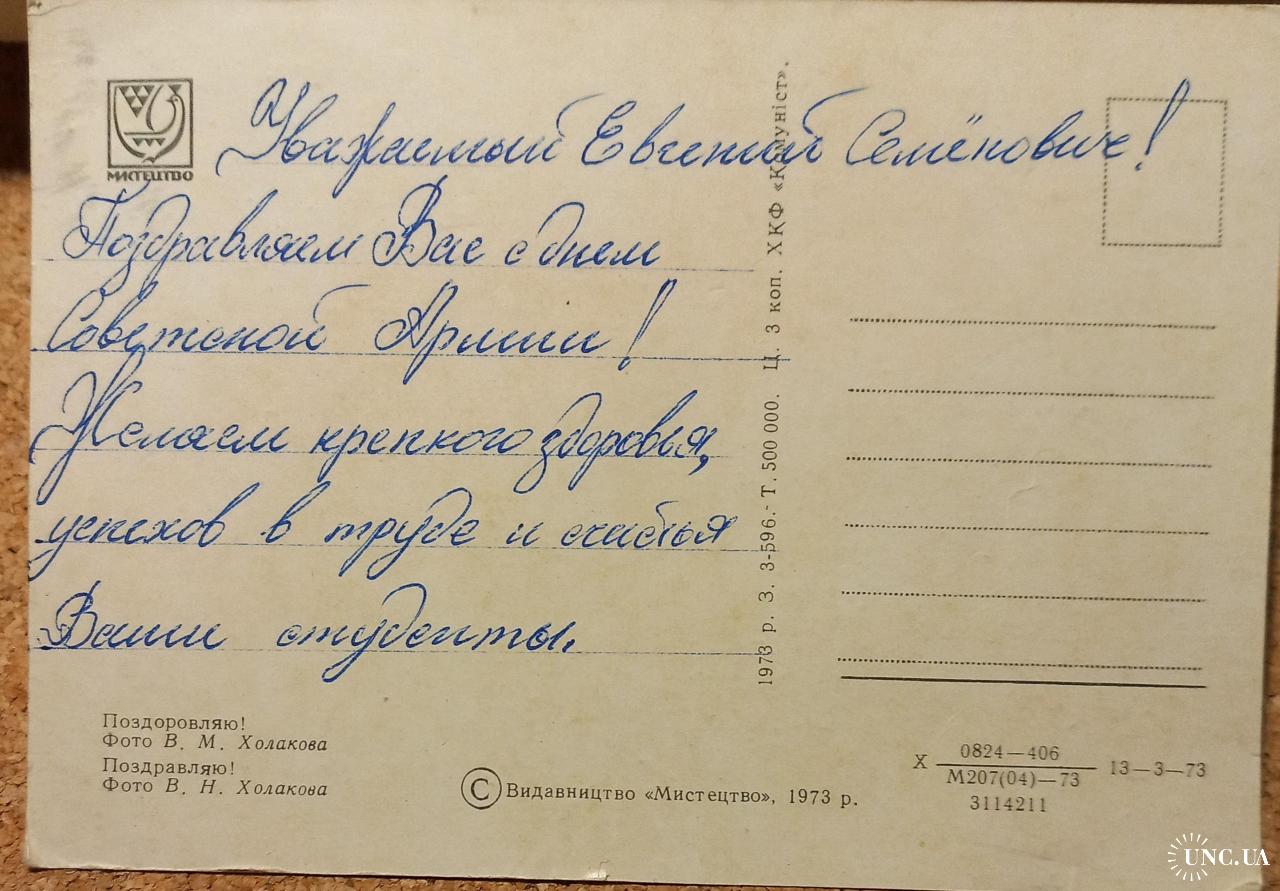 МИСТЕЦТВО
Уважаемый Евгений Семёнович!
Поздравляем Вас с днем
Советской Армии!
Желаем крепкого здоровья,
успехов в труде и счастья
Ваши студенты.
1973 р. З. 3-596.- Т. 500 000. Ц. 3 коп. ХКФ «Комуніст».
Поздоровляю!
Фото В. М. Холакова
Поздравляю!
Фото В. Н. Холакова
© Видавництво «Мистецтво», 1973 р.
Х 0824—406
М207(04)—73 13—3—73
3114211
UNC.UA